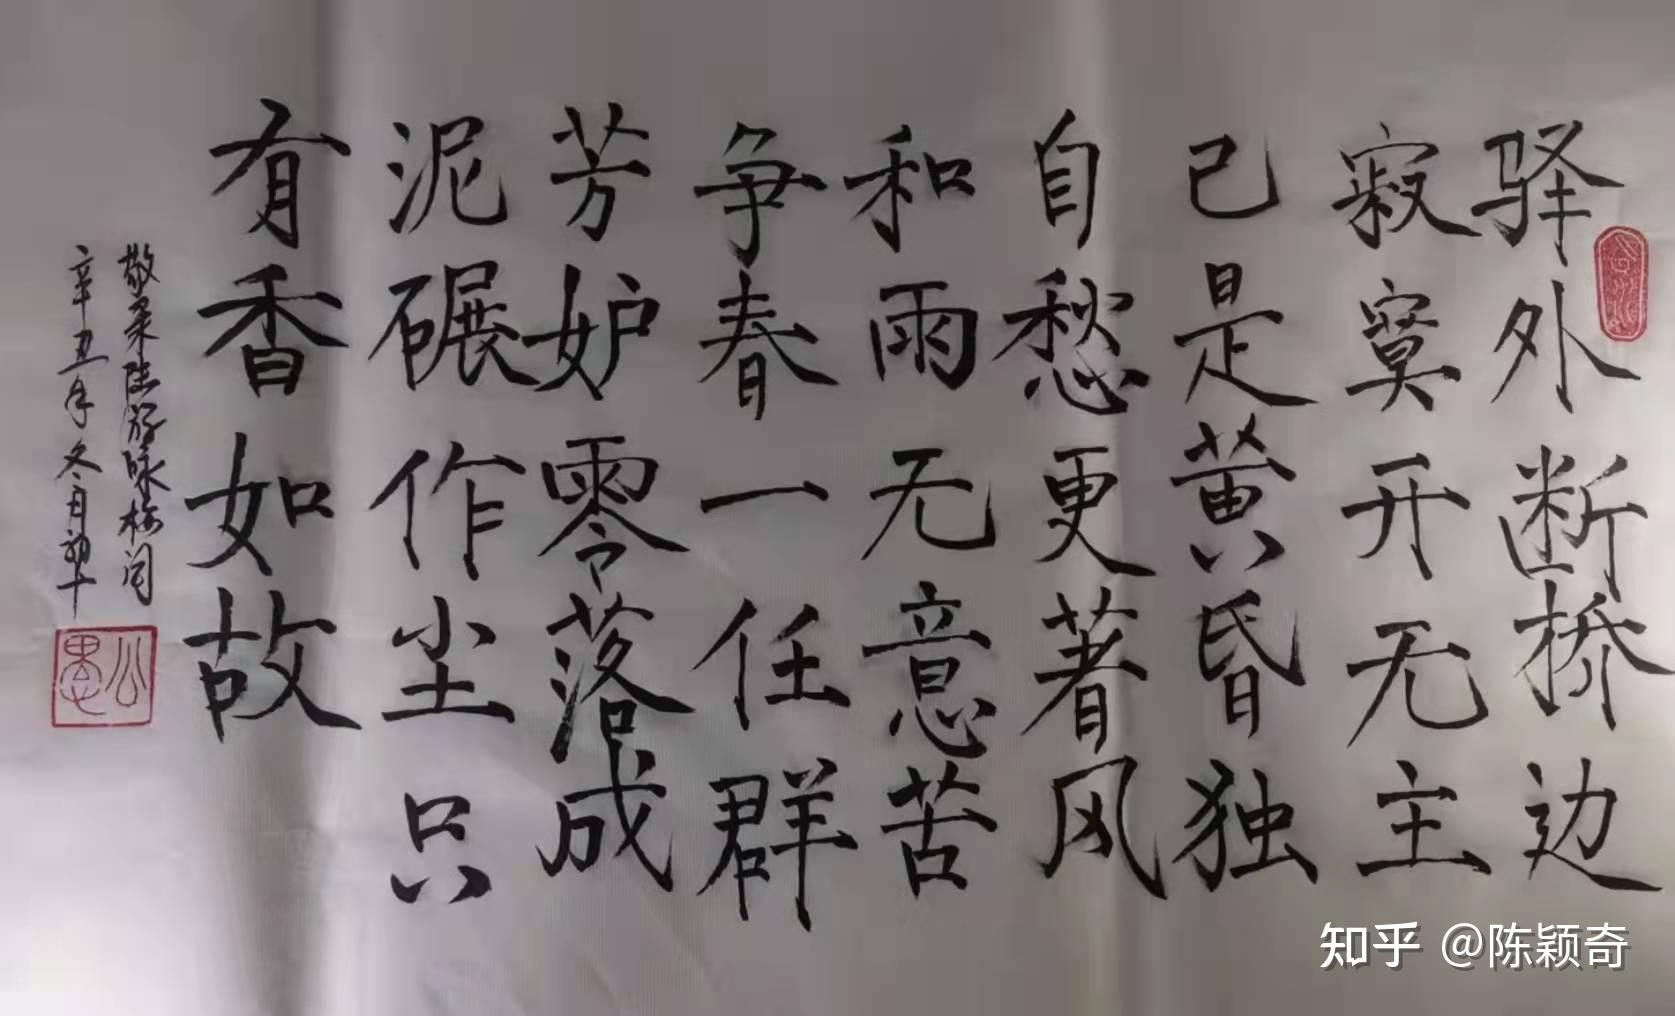 驿外断桥边
寂寞开无主
已是黄昏独
自愁更著风
和雨无意苦
争春一任群
芳妒零落成
泥碾作尘只
有香香如故
敬录陆游咏梅词
辛丑年冬月
知乎 @陈颖奇